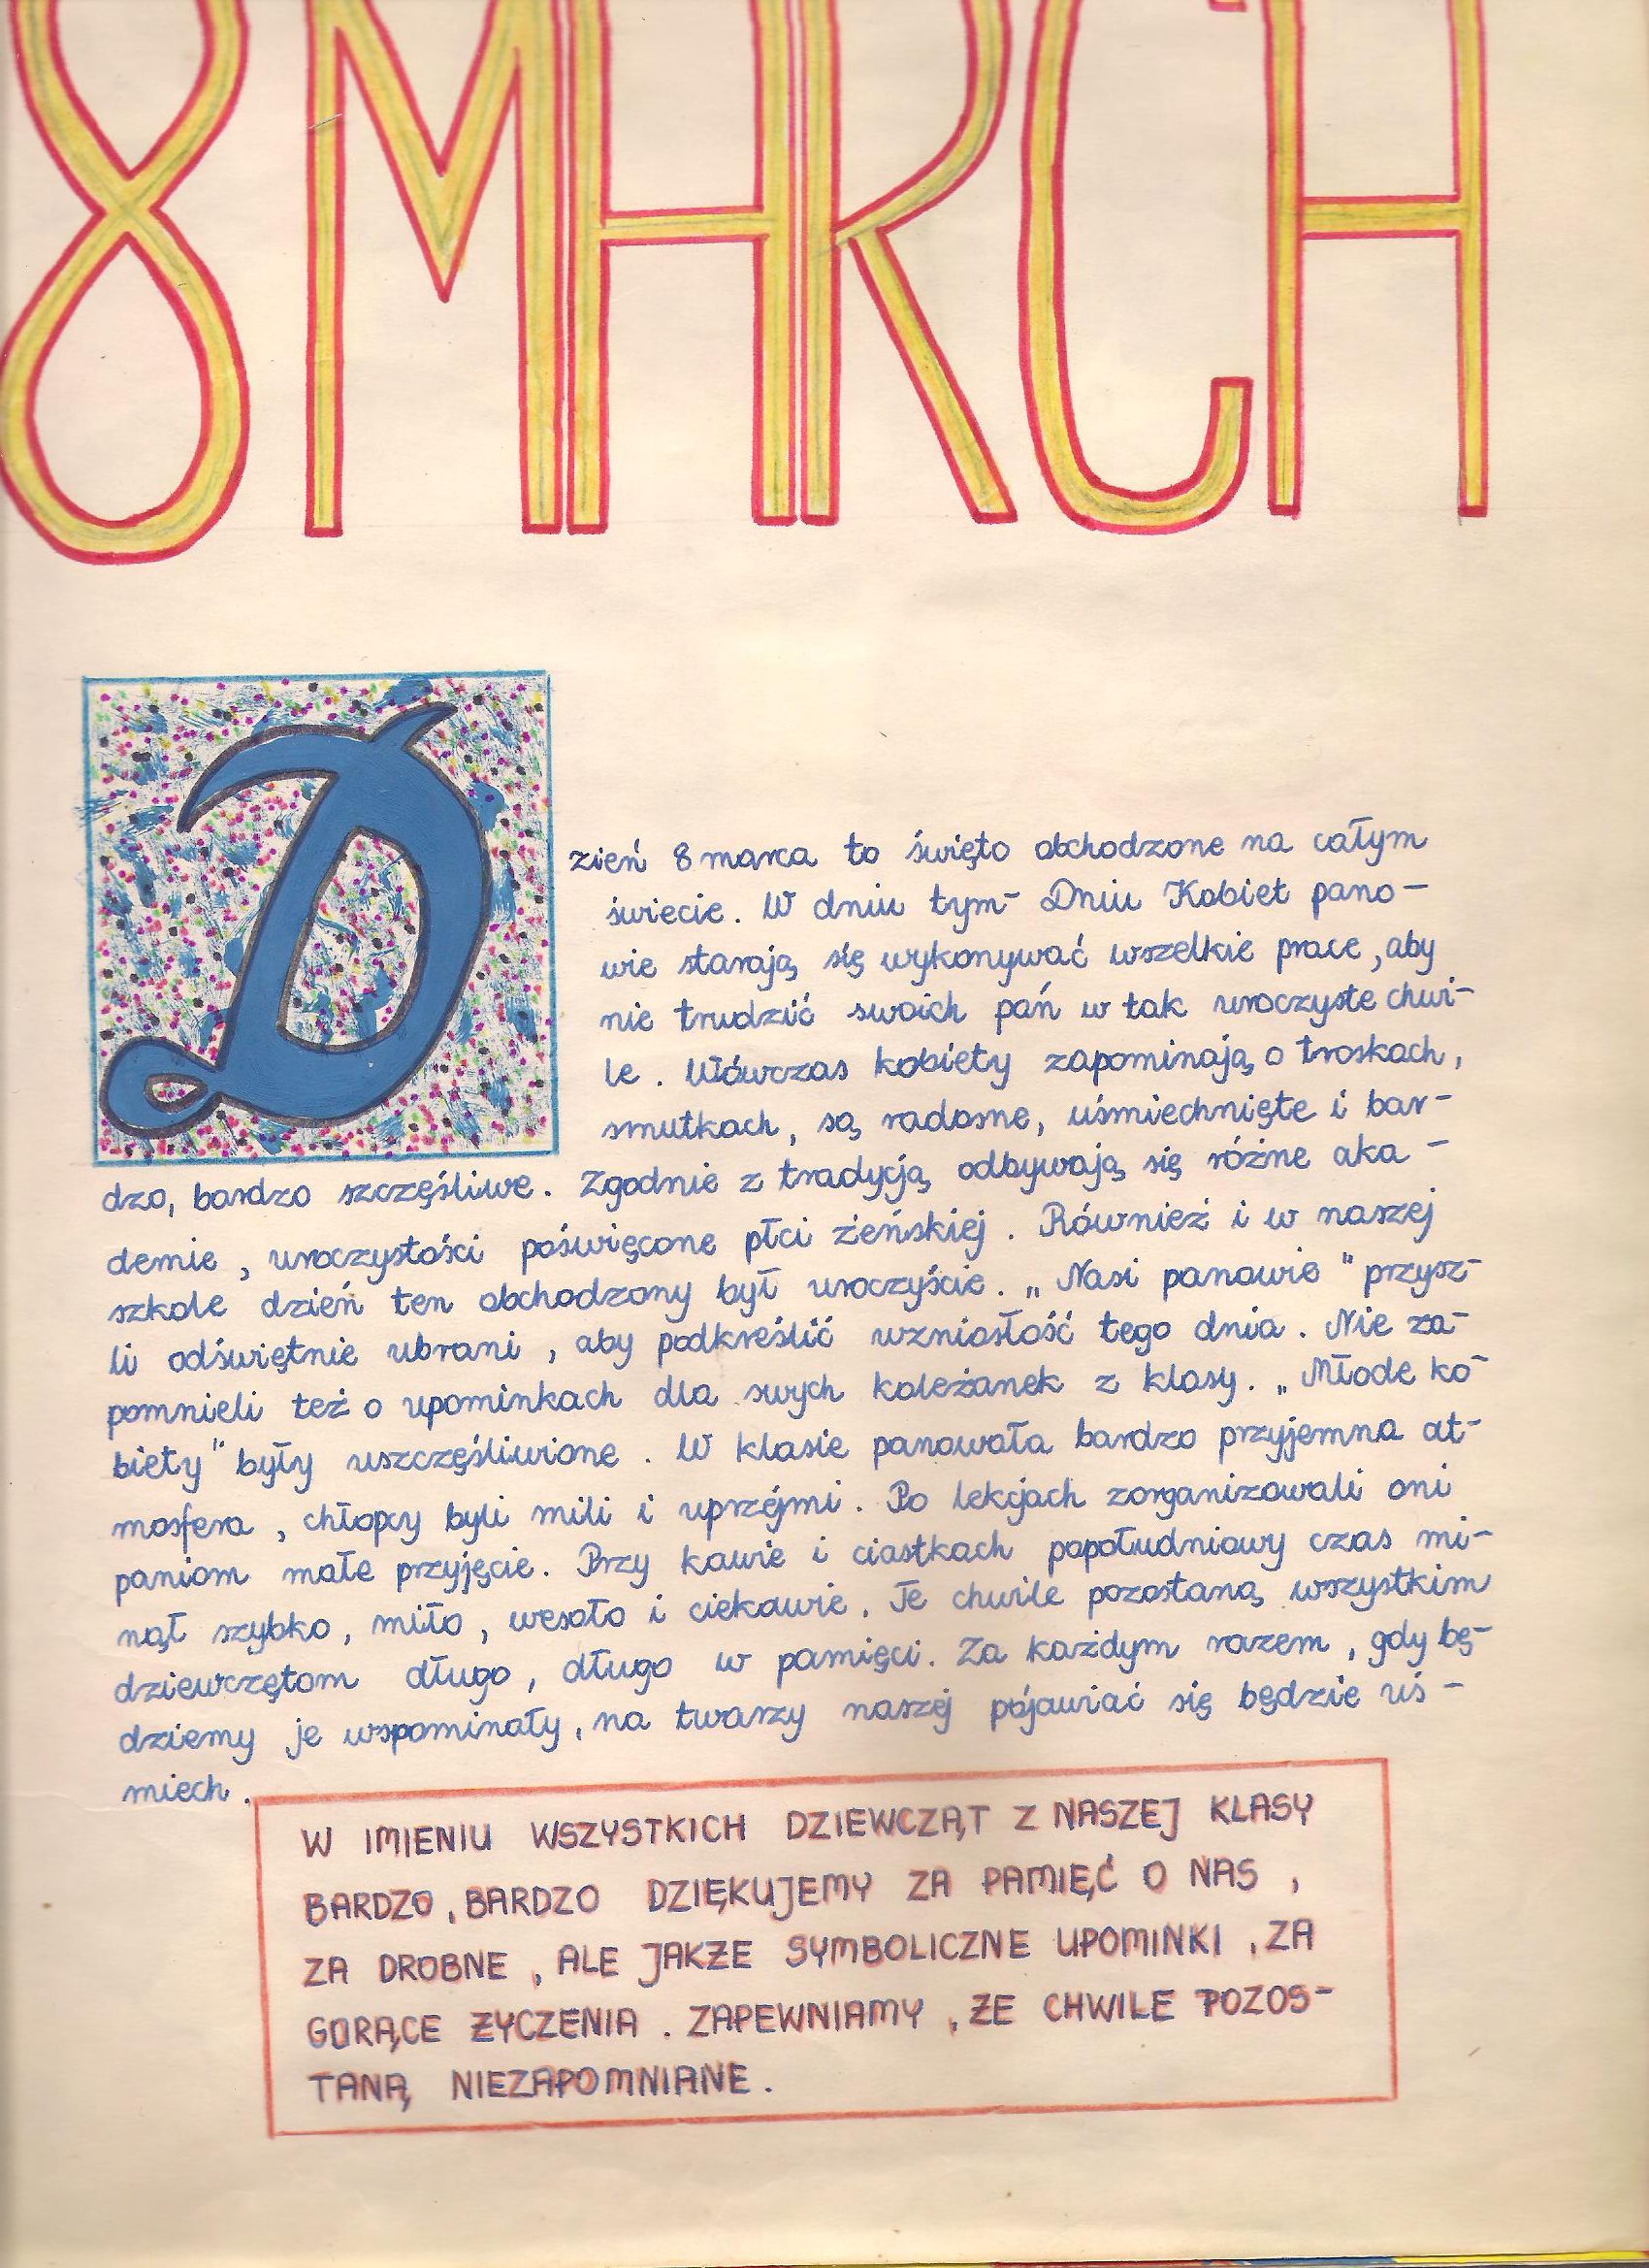 8 MARCH
Dzień 8 marca to święto obchodzone na całym
świecie. W dniu tym - Dniu Kobiet pano-
wie starają się wykonywać wszelkie prace, aby
nie trudzić swoich pań w tak uroczyste chwi-
le. Wówczas kobiety zapominają o troskach,
smutkach, są radosne, uśmiechnięte i bar-
dzo, bardzo szczęśliwe. Zgodnie z tradycją odbywają się różne aka-
demie, uroczystości poświęcone płci żeńskiej. Również i w naszej
szkole dzień ten obchodzony był uroczyście. „Nasi panowie" przysz-
li odświętnie ubrani, aby podkreślić wzniosłość tego dnia. Nie za-
pomnieli też o upominkach dla swych koleżanek z klasy. „Młode ko-
biety" były uszczęśliwione. W klasie panowała bardzo przyjemna at-
mosfera, chłopcy byli mili i uprzejmi. Po lekcjach zorganizowali oni
paniom małe przyjęcie. Przy kawie i ciastkach popołudniowy czas mi-
nął szybko, miło, wesoło i ciekawie. Te chwile pozostaną wszystkim
dziewczętom długo, długo w pamięci. Za każdym razem, gdy bę-
dziemy je wspominały, na twarzy naszej pojawiać się będzie uś-
miech.
W IMIENIU WSZYSTKICH DZIEWCZĄT Z NASZEJ KLASY
BARDZO, BARDZO DZIĘKUJEMY ZA PAMIĘĆ O NAS,
ZA DROBNE, ALE JAKŻE SYMBOLICZNE UPOMINKI, ZA
GORĄCE ŻYCZENIA. ZAPEWNIAMY, ŻE CHWILE POZOS-
TANĄ NIEZAPOMNIANE.